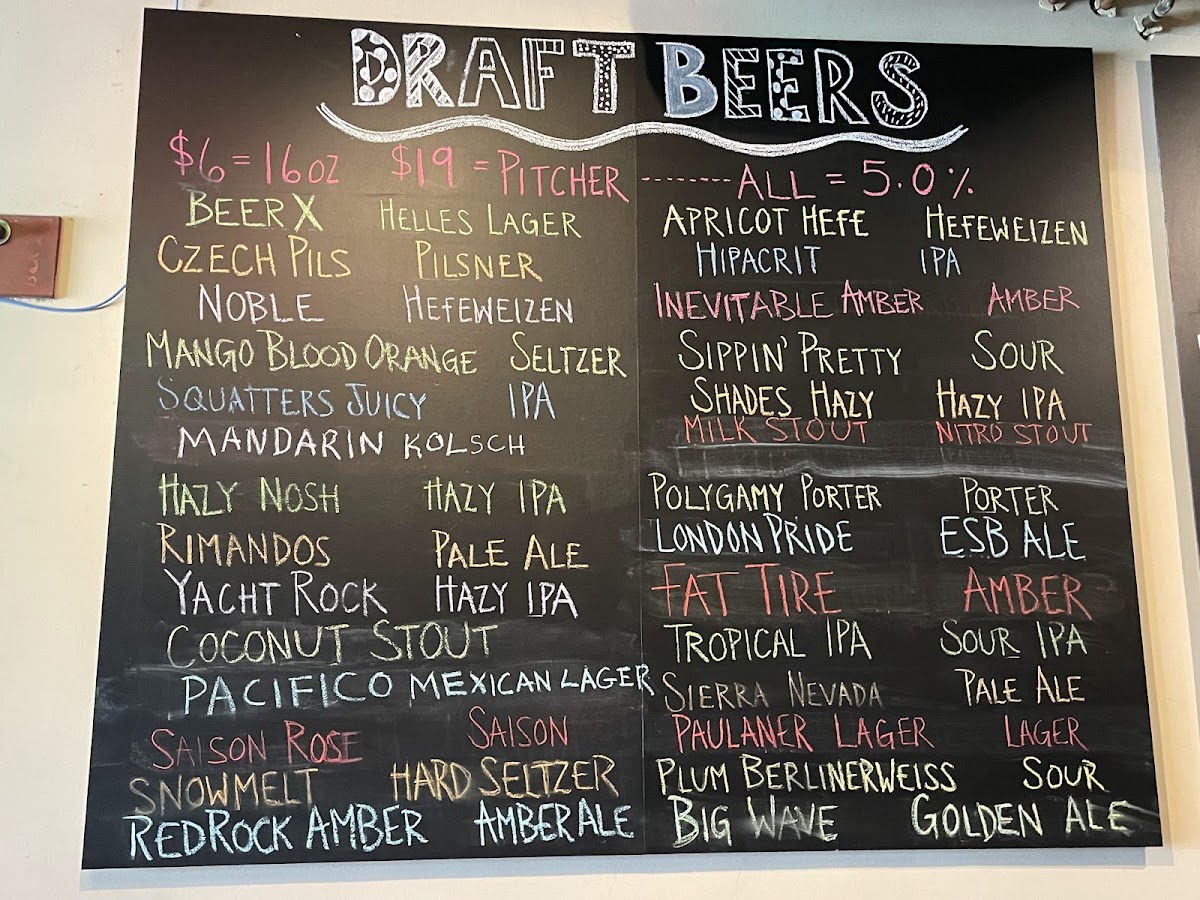 DRAFT BEERS
$6 = 16oz $19 = PITCHER -------- ALL = 5.0%
BEER X HELLES LAGER
CZECH PILS PILSNER
NOBLE HEFEWEIZEN
MANGO BLOOD ORANGE SELTZER
SQUATTERS JUICY IPA
MANDARIN KOLSCH
HAZY NOSH HAZY IPA
RIMANDOS PALE ALE
YACHT ROCK HAZY IPA
COCONUT STOUT
PACIFICO MEXICAN LAGER
SAISON ROSE SAISON
SNOWMELT HARD SELTZER
RED ROCK AMBER AMBER ALE
APRICOT HEFE HEFEWEIZEN
HIPACRIT IPA
INEVITABLE AMBER AMBER
SIPPIN' PRETTY SOUR
SHADES HAZY HAZY IPA
MILK STOUT NITRO STOUT
POLYGAMY PORTER PORTER
LONDON PRIDE ESB ALE
FAT TIRE AMBER
TROPICAL IPA SOUR IPA
SIERRA NEVADA PALE ALE
PAULANER LAGER LAGER
PLUM BERLINERWEISS SOUR
BIG WAVE GOLDEN ALE